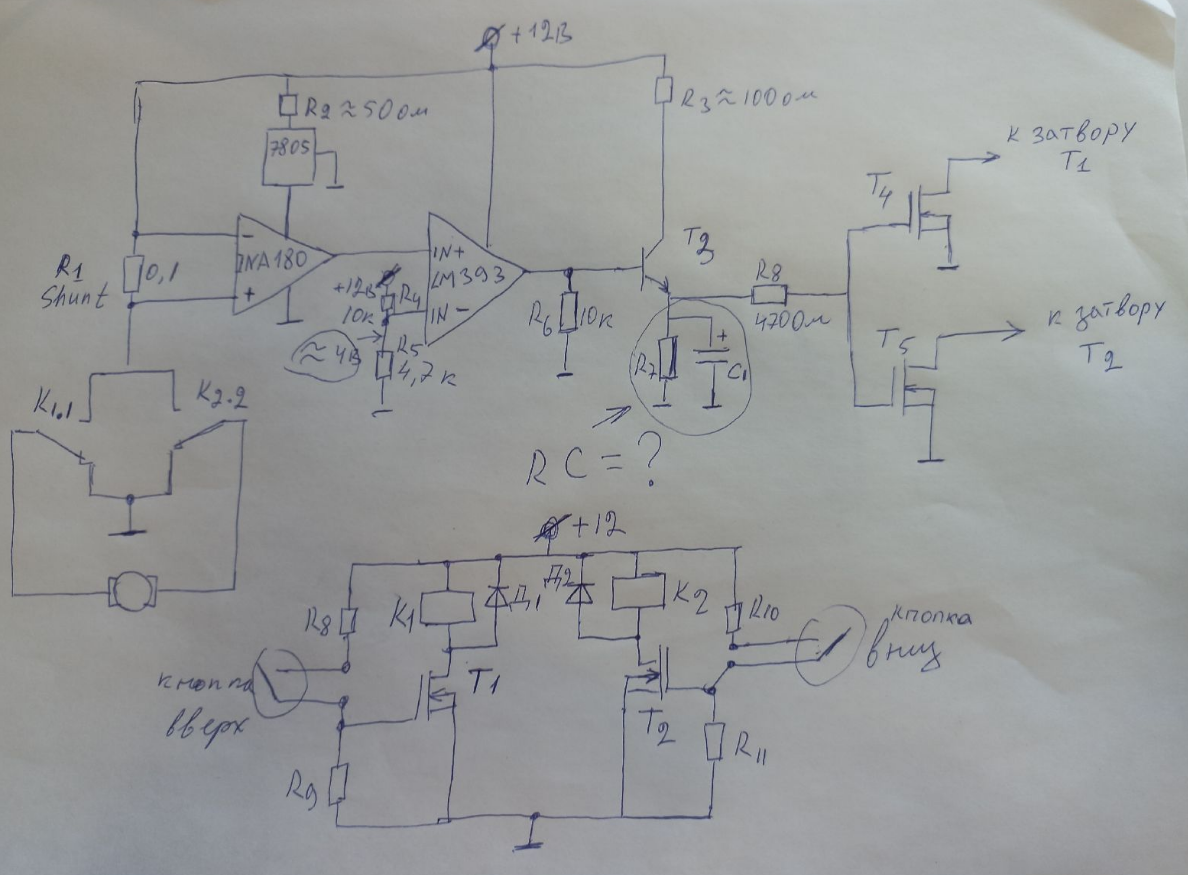 +12В
R2 ≈ 50 ом
R3 ≈ 100 ом
7805
к затвору
T1
T4
−
INA180
+
R1
0,1
Shunt
IN+
LM393
IN −
+12В
R4
10к
≈ 4В
R5
4,7к
R6
10к
T3
R8
470 ом
R7
+
C1
T5
к затвору
T2
K1.1
K2.2
RC = ?
+12
R8
K1
Д1
Д2
K2
R10
кнопка
вниз
кнопка
вверх
T1
T2
R9
R11